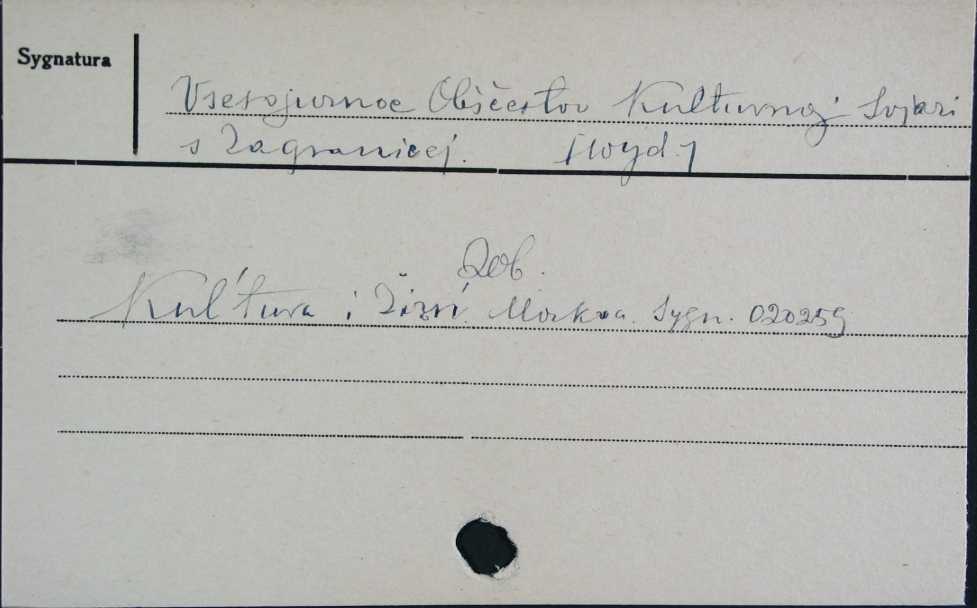 Sygnatura
Vsesojuznoe Obščestvo Kulturnoj Svjazi
s Zagranicej. [wyd.]
Zob.
Kul'tura i Žizń. Moskva. Sygn. 020259